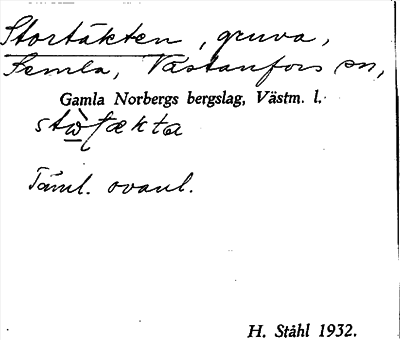 Stortäkten, gruva,
Semla, Västanfors sn,
Gamla Norbergs bergslag, Västm. l.
Täml. ovanl.
H. Ståhl 1932.